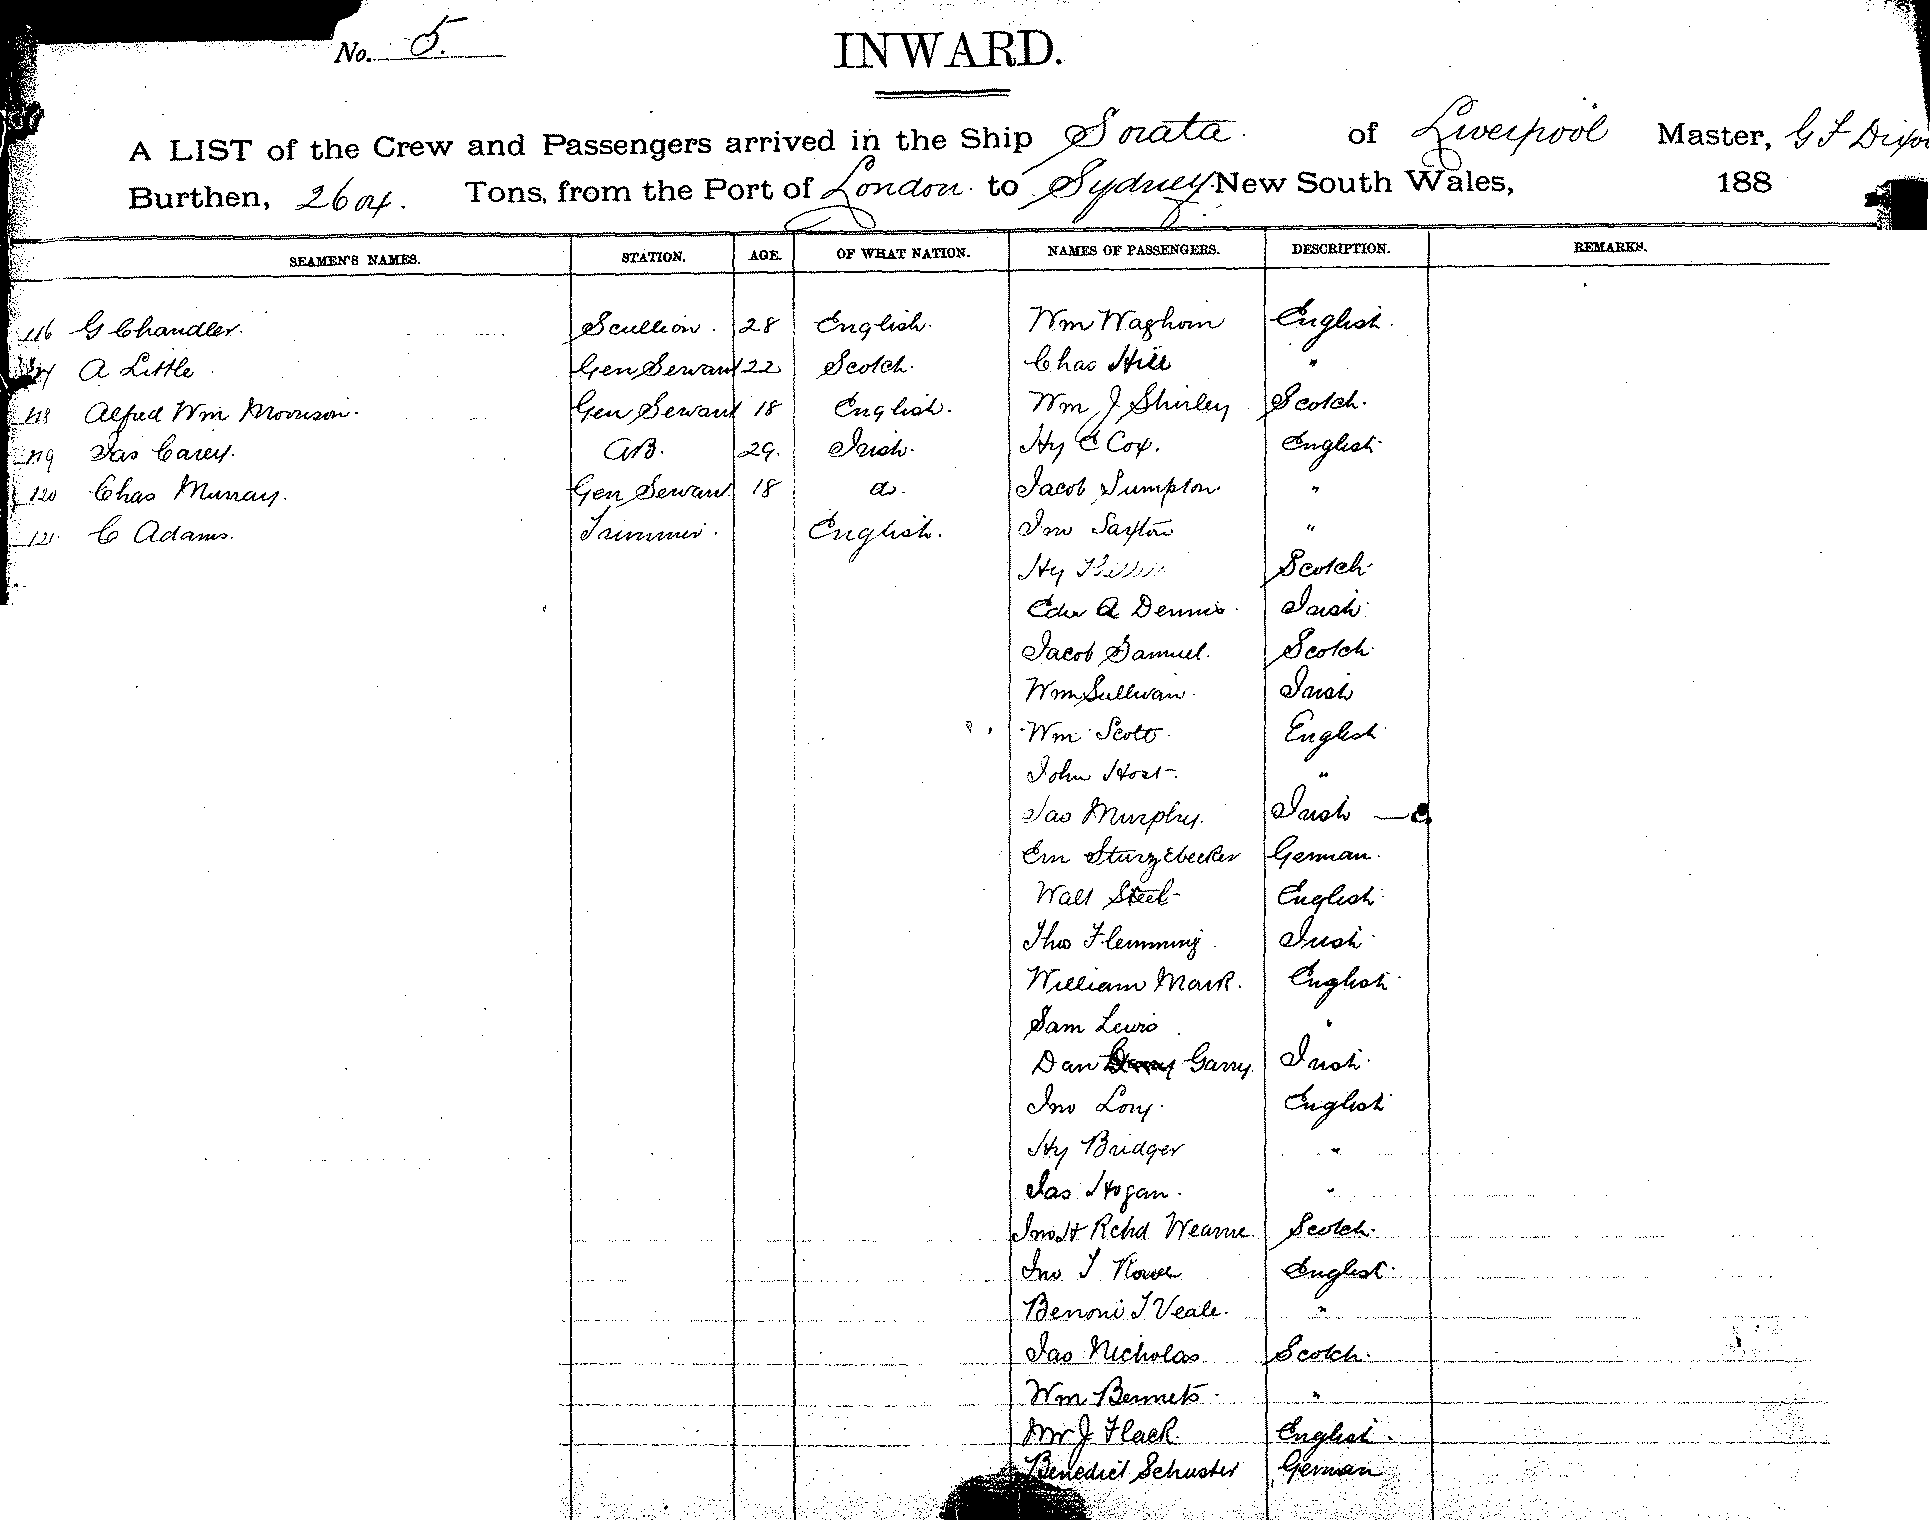 No. 5.
INWARD.
A LIST of the Crew and Passengers arrived in the Ship Sorata. of Liverpool Master, G F Dixon
Burthen, 2604. Tons, from the Port of London to Sydney New South Wales, 188
SEAMEN'S NAMES. STATION. AGE. OF WHAT NATION. NAMES OF PASSENGERS. DESCRIPTION. REMARKS.
116 G Chandler. Scullion. 28 English. Wm Waghorn English.
A Little Gen Servant 22 Scotch. Chas Hill "
118 Alfred Wm Morrison. Gen Servant 18 English. Wm J Shirley Scotch.
119 Jas Carey. AB. 29. Irish. Hy E Cox. English
120 Chas Murray. Gen Servant 18 do. Jacob Sumpton "
121 C Adams. Trimmer. English. Jno Saxton "
Hy Scotch
Edw A Dennis. Irish.
Jacob Samuel. Scotch.
Wm Sullivan. Irish
Wm Scott. English
John Host. "
Jas Murphy. Irish
Em Sturzebecker German.
Walt Steel English
Thos Flemming. Irish.
William Mark. English
Sam Lewis "
Dan Garry. Irish.
Jno Lory. English
Hy Bridger "
Jas Hogan. "
Jno H Rchd Wearne Scotch.
Jno T Rowe English.
Benoni T Veale. "
Jas Nicholas Scotch.
Wm Bennets. "
Mr J Flack. English.
Benedict Schuster German